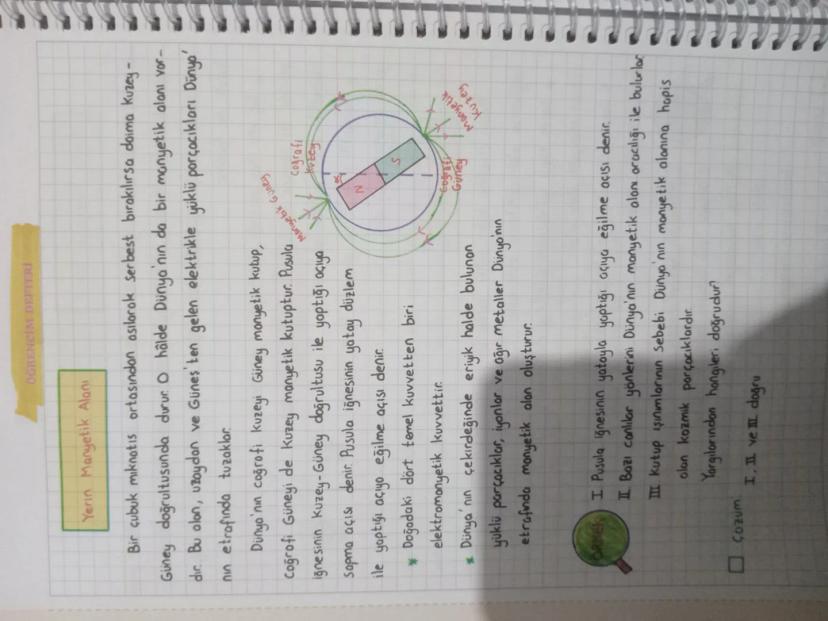 ÖĞRENCİM DEFTERİ
Yerin Manyetik Alanı
Bir çubuk mıknatıs ortasından asılarak serbest bırakılırsa daima Kuzey-
Güney doğrultusunda durur. O hâlde Dünya'nın da bir manyetik alanı var-
dır. Bu alan, uzaydan ve Güneş'ten gelen elektrikle yüklü parçacıkları Dünya'
nın etrafında tuzaklar.
Dünya'nın coğrafi kuzeyi Güney manyetik kutup,
Coğrafi Güneyi de Kuzey manyetik kutuptur. Pusula
iğnesinin Kuzey-Güney doğrultusu ile yaptığı açıya
sapma açısı denir. Pusula iğnesinin yatay düzlem
ile yaptığı açıya eğilme açısı denir.
* Doğadaki dört temel kuvvetten biri
elektromanyetik kuvvettir.
* Dünya'nın çekirdeğinde eriyik halde bulunan
yüklü parçacıklar, iyonlar ve ağır metaller Dünya'nın
etrafında manyetik alan oluşturur.
Manyetik Güney
Coğrafi
Kuzey
α
N
S
Coğrafi
Güney
Manyetik
Kuzey
I Pusula iğnesinin yatayla yaptığı açıya eğilme açısı denir.
II Bazı canlılar yönlerini Dünya'nın manyetik alanı aracılığı ile bulurlar
III Kutup ışınımlarının sebebi Dünya'nın manyetik alanına hapis
olan kozmik parçacıklardır.
Yargılarından hangileri doğrudur?
Çözüm
I, II ve III doğru